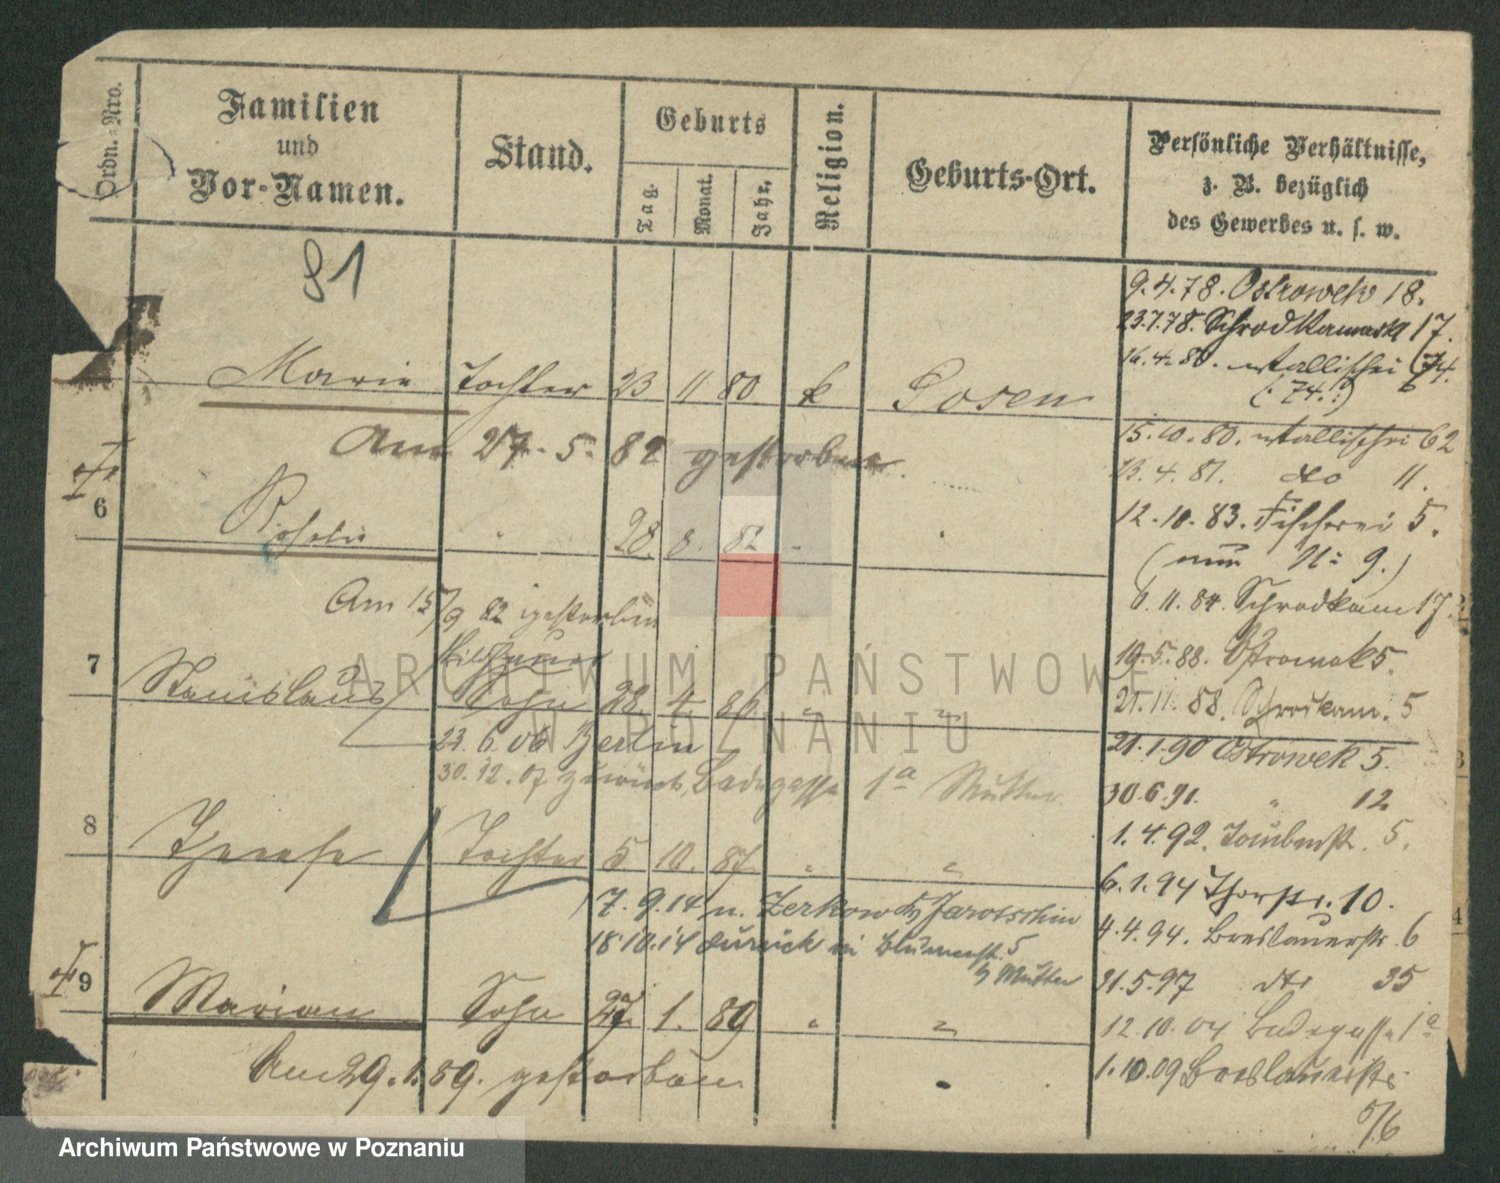 Ordn.=Nro.
Familien
und
Vor=Namen.
Stand.
Geburts
Tag.
Monat.
Jahr.
Religion.
Geburts=Ort.
Persönliche Verhältnisse,
z. B. bezüglich
des Gewerbes u. s. w.
81
9.4.78. Ostrowek 18.
23.7.78. Schrodkamarkt 17.
16.4.80. Wallischei 74.
(: 74. :)
Marie Tochter 23 11 80. k Posen
15.10.80. Wallischei 62
Am 27. 5. 82 gestorben.
13.4.81. do 11.
6
Roselie " 28. 8. 82 " "
12.10.83. Fischerei 5.
(nun N: 9.)
Am 15/9 82 gestorben
6.11.84. Schrodkam 17.
7
Stanislaus Sohn 28. 4. 86 " "
19.5.88. Ostrowek 5.
21.11.88. Schrodkam. 5
23.6.06 Berlin
21.1.90 Ostrowek 5.
30.12.07 zurück, Badegasse 1a Mutter
30.6.91. " 12
8
Therese Tochter 5 10. 87 " "
1.4.92. Taubenstr. 5.
6.1.94 Thorstr. 10.
7.9.14 n. Zerkow b/ Jarotschin
18.10.14 zurück in Blumenstr. 5
b/ Mutter
4.4.94. Breslauerstr. 6
9
Marian Sohn 27. 1. 89 " "
31.5.97 dto 35
12.10.04 Badegasse 1a
Am 29.1.89. gestorben
1.10.09 Breslauerstr
5/6
ARCHIWUM PAŃSTWOWE
W POZNANIU
Archiwum Państwowe w Poznaniu